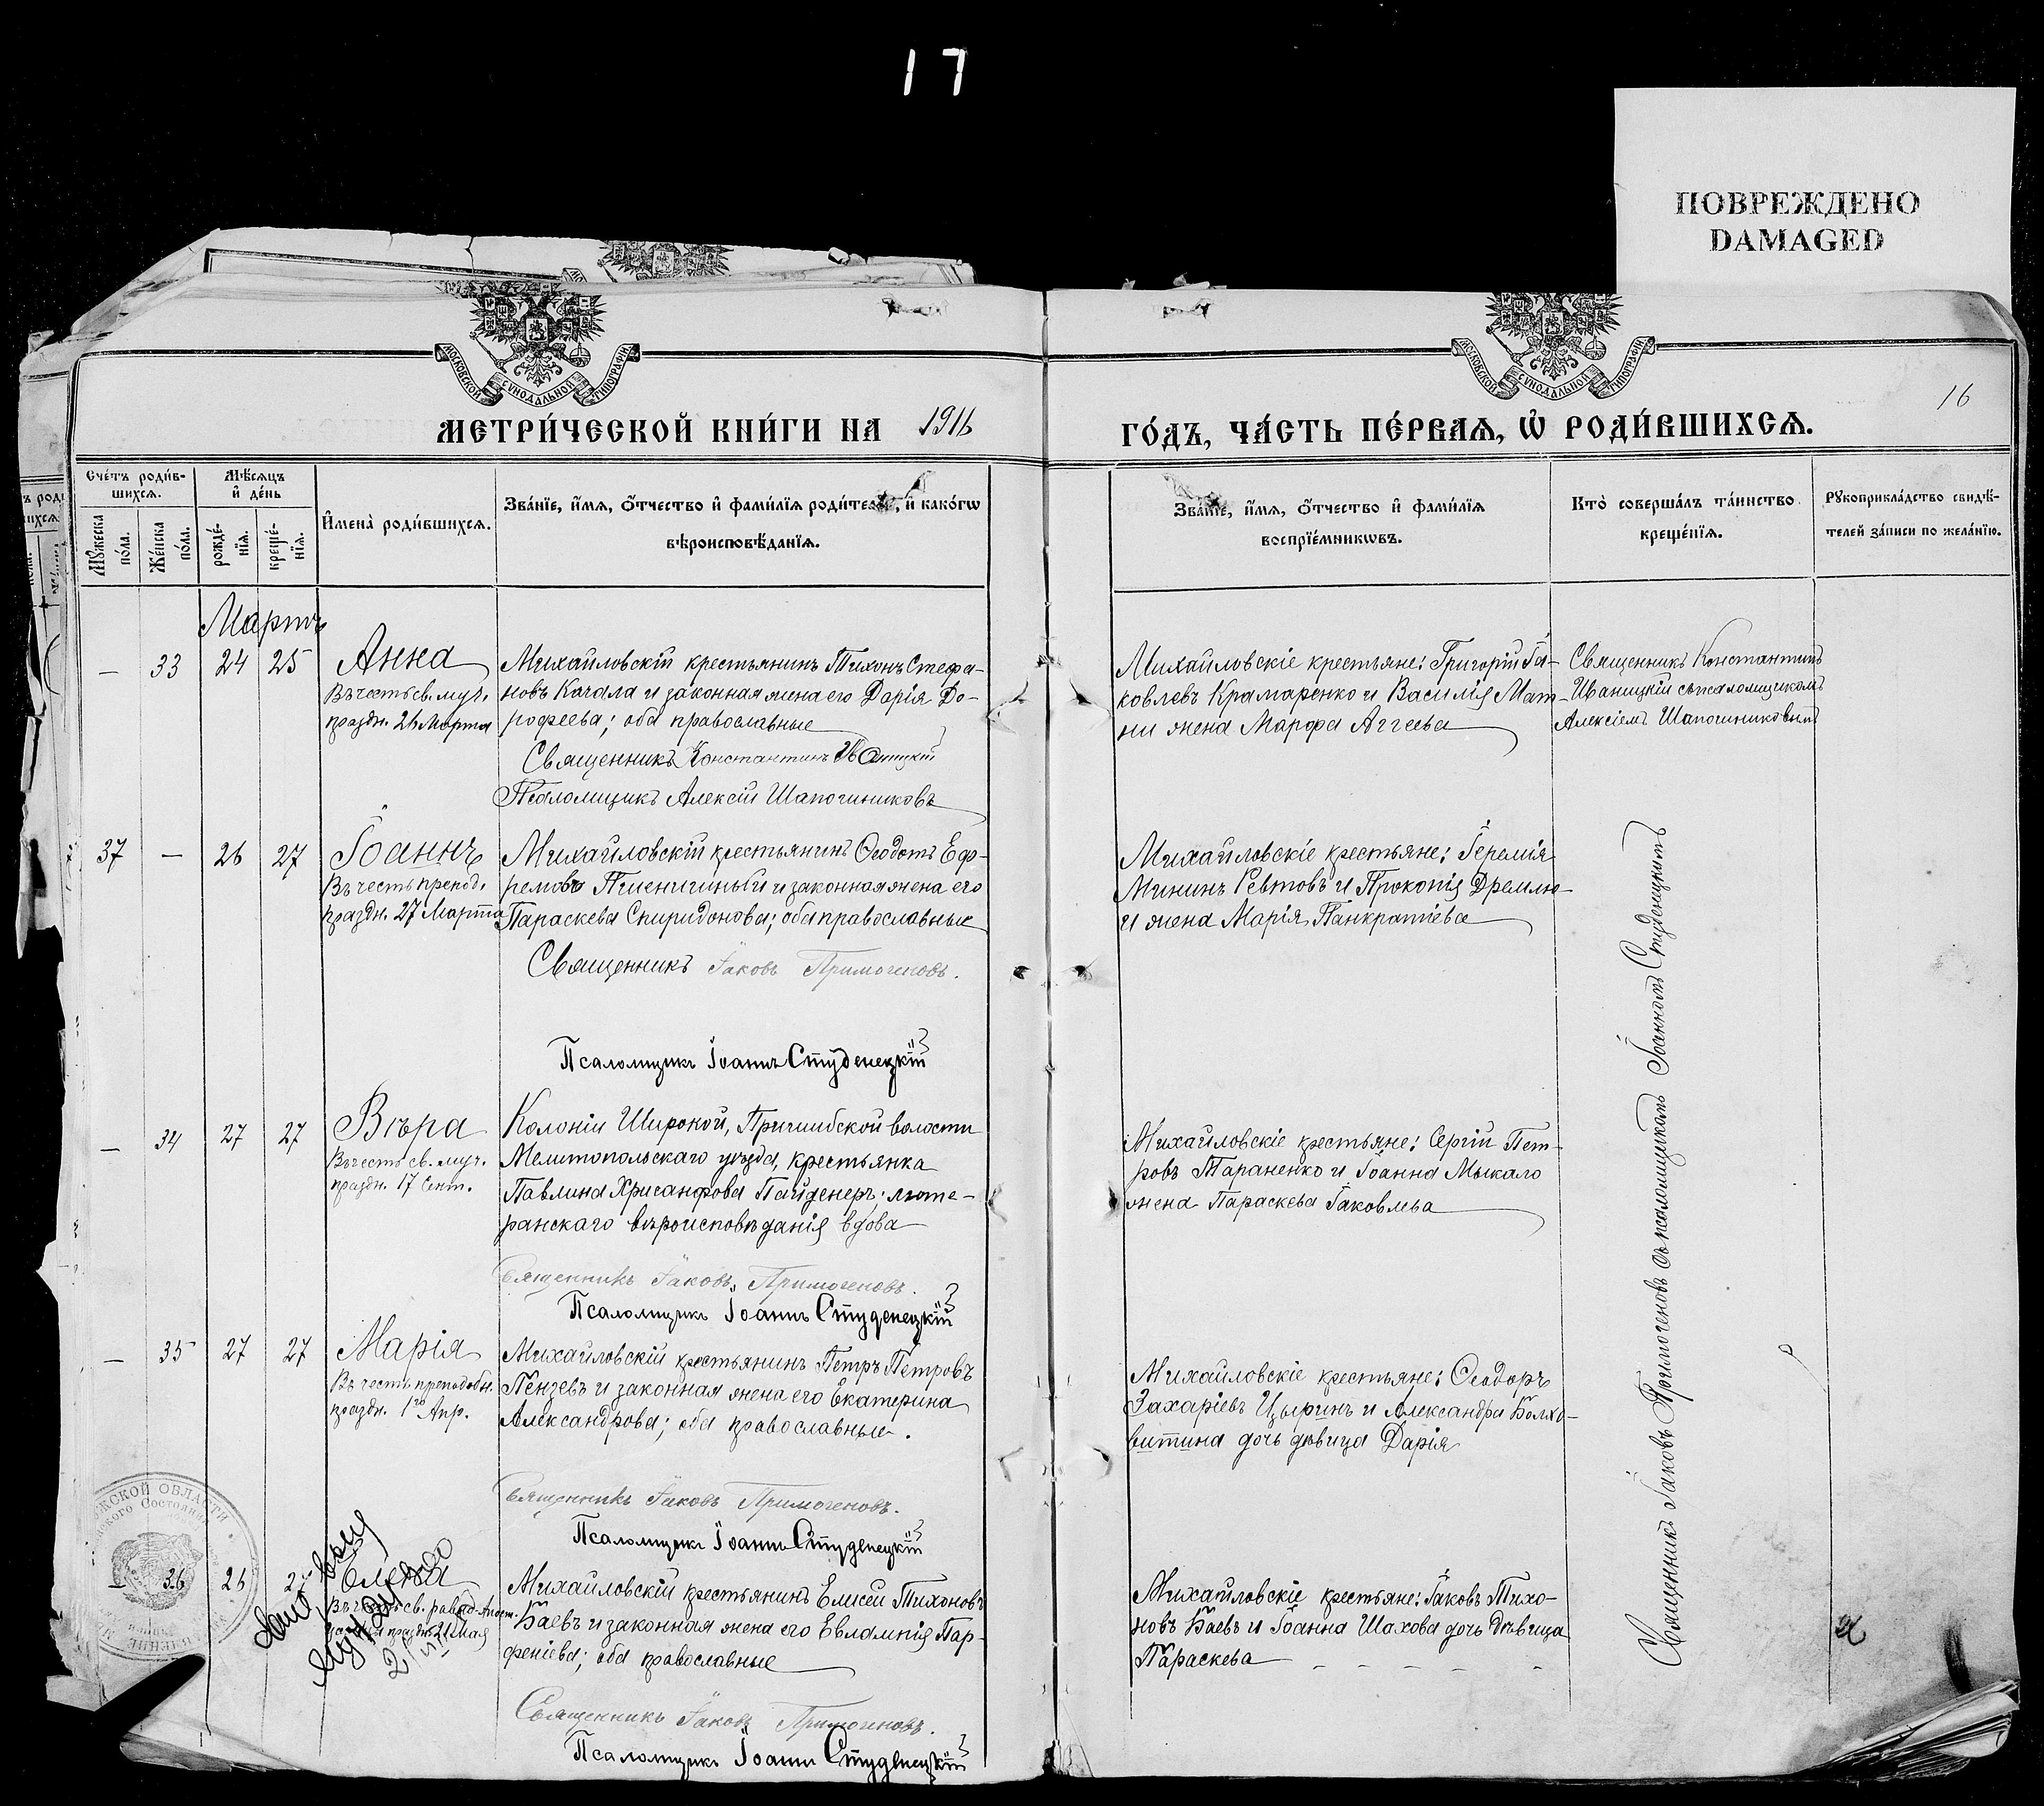 17
ПОВРЕЖДЕНО
DAMAGED
МОСКОВСКОЙ СѴНОДАЛЬНОЙ ТИПОГРАФІИ
МОСКОВСКОЙ СѴНОДАЛЬНОЙ ТИПОГРАФІИ
16
МЕТРИ́ЧЕСКОЙ КНИ́ГИ НА 1916
ГО́ДЪ, ЧА́СТЬ ПЕ́РВАЯ, Ѡ҆ РОДИ́ВШИХСЯ.
Сче́тъ роди́в-
шихся.
Мꙋ́жеска по́ла.
Же́нска по́ла.
Мѣ́сяцъ и҆ де́нь
рожде́-нїя.
креще́-нїя.
И҆мена̀ роди́вшихся.
Зва́нїе, и҆́мя, ѻ҆́тчество и҆ фами́лїя роди́те, и҆ како́гѡ
вѣроисповѣ́данїя.
Зва́нїе, и҆́мя, ѻ҆́тчество и҆ фами́лїя
воспрїе́мникѡвъ.
Кто̀ соверша́лъ та́инство
креще́нїя.
Рꙋкоприкла́дство свидѣ́-
телей за́писи по жела́нїю.
Мартъ
— 33 24 25 Анна
Въ честь св. муч.
праздн. 26 Марта
Михайловскій крестьянинъ Тихонъ Стефа-
новъ Качала и законная жена его Дарія До-
рофеева; оба православные
Священникъ Константинъ Иваницкій
Псаломщикъ Алексій Шапошниковъ
Михайловскіе крестьяне: Григорій Іа-
ковлевъ Крамаренко и Василія Мат-
ни жена Марфа Аггеева
Священникъ Константинъ
Иваницкій съ псаломщикомъ
Алексіемъ Шапошниковымъ
37 — 26 27 Іоаннъ
Въ честь препод.
праздн. 27 Марта
Михайловскій крестьянинъ Ѳеодотъ Еф-
ремовъ Пшеничный и законная жена его
Параскева Спиридонова; оба православные
Священникъ Іаковъ Примогеновъ.
Псаломщикъ Іоаннъ Студенецкій
Михайловскіе крестьяне: Іеремія
Мининъ Ревтовъ и Прокопія Дремлю-
и жена Марія Панкратіева
— 34 27 27 Вѣра
Въ честь св. муч.
праздн. 17 Сент.
Колоніи Широкой, Пришибской волости
Мелитопольскаго уѣзда, крестьянка
Павлина Хрисанфова Пайденеръ, люте-
ранскаго вѣроисповѣданія вдова
Священникъ Іаковъ Примогеновъ.
Псаломщикъ Іоаннъ Студенецкій
Михайловскіе крестьяне: Сергій Пет-
ровъ Тараненко и Іоанна Мыкало
жена Параскева Іаковлева
— 35 27 27 Марія
Въ честь преподобн.
праздн. 1го Апр.
Михайловскій крестьянинъ Петръ Петровъ
Пензевъ и законная жена его Екатерина
Александрова; оба православные.
Священникъ Іаковъ Примогеновъ.
Псаломщикъ Іоаннъ Студенецкій
Михайловскіе крестьяне: Ѳеодоръ
Захаріевъ Цыринъ и Александра Болхо-
витина дочь дѣвица Дарія
— 36 26 27 Елена
Въ честь св. равноапост.
праздн. 21 Мая
Михайловскій крестьянинъ Елисей Тихоновъ
Баевъ и законная жена его Евлампія Пар-
феніева; оба православные
Священникъ Іаковъ Примогеновъ.
Псаломщикъ Іоаннъ Студенецкій
Михайловскіе крестьяне: Іаковъ Тихо-
новъ Баевъ и Іоанна Шахова дочь дѣвица
Параскева
Священникъ Іаковъ Примогеновъ съ псаломщикомъ Іоанномъ Студенецкимъ